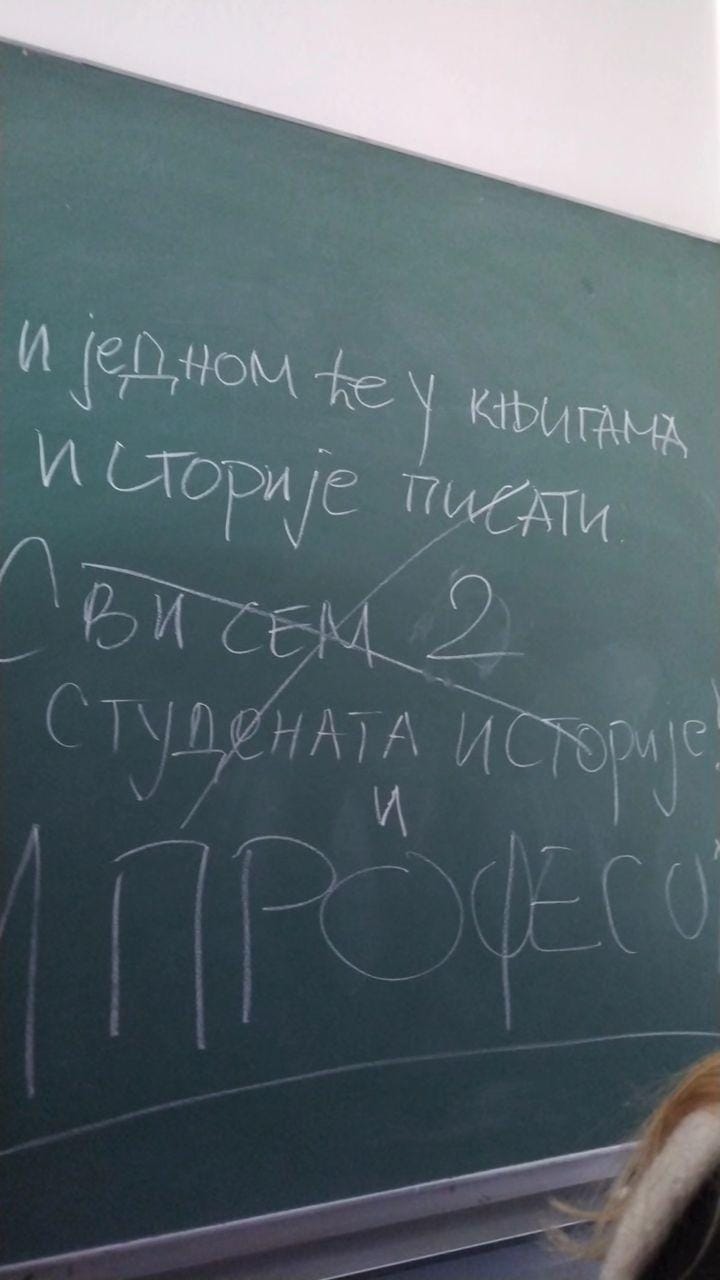 и једном ће у књигама
историје писати
Сви сем 2
студената историје!
и
И ПРОФЕСО